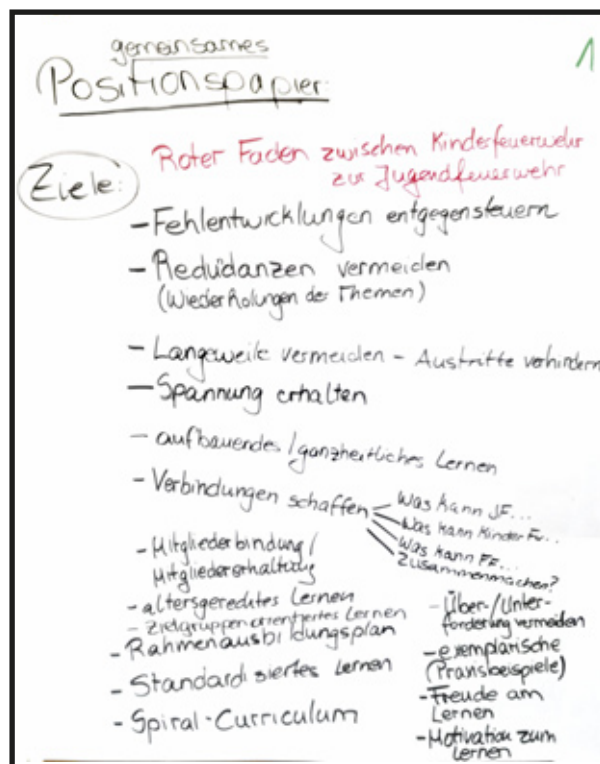 gemeinsames
Positionspapier:
1
Ziele:
Roter Faden zwischen Kinderfeuerwehr
zur Jugendfeuerwehr
- Fehlentwicklungen entgegensteuern
- Redudanzen vermeiden
(Wiederholungen der Themen)
- Langeweile vermeiden - Austritte verhindern
- Spannung erhalten
- aufbauendes / ganzheitliches Lernen
- Verbindungen schaffen
Was kann JF...
Was kann Kinder Fw...
Was kann FF...
Zusammenmachen?
- Mitgliederbindung /
Mitgliedererhaltung
- altersgerechtes Lernen
- Zielgruppenorientiertes Lernen
- Rahmenausbildungsplan
- Standardisiertes Lernen
- Spiral-Curriculum
- Über-/Unter-
forderung vermeiden
- exemplarische
(Praxisbeispiele)
- Freude am
Lernen
- Motivation zum
Lernen